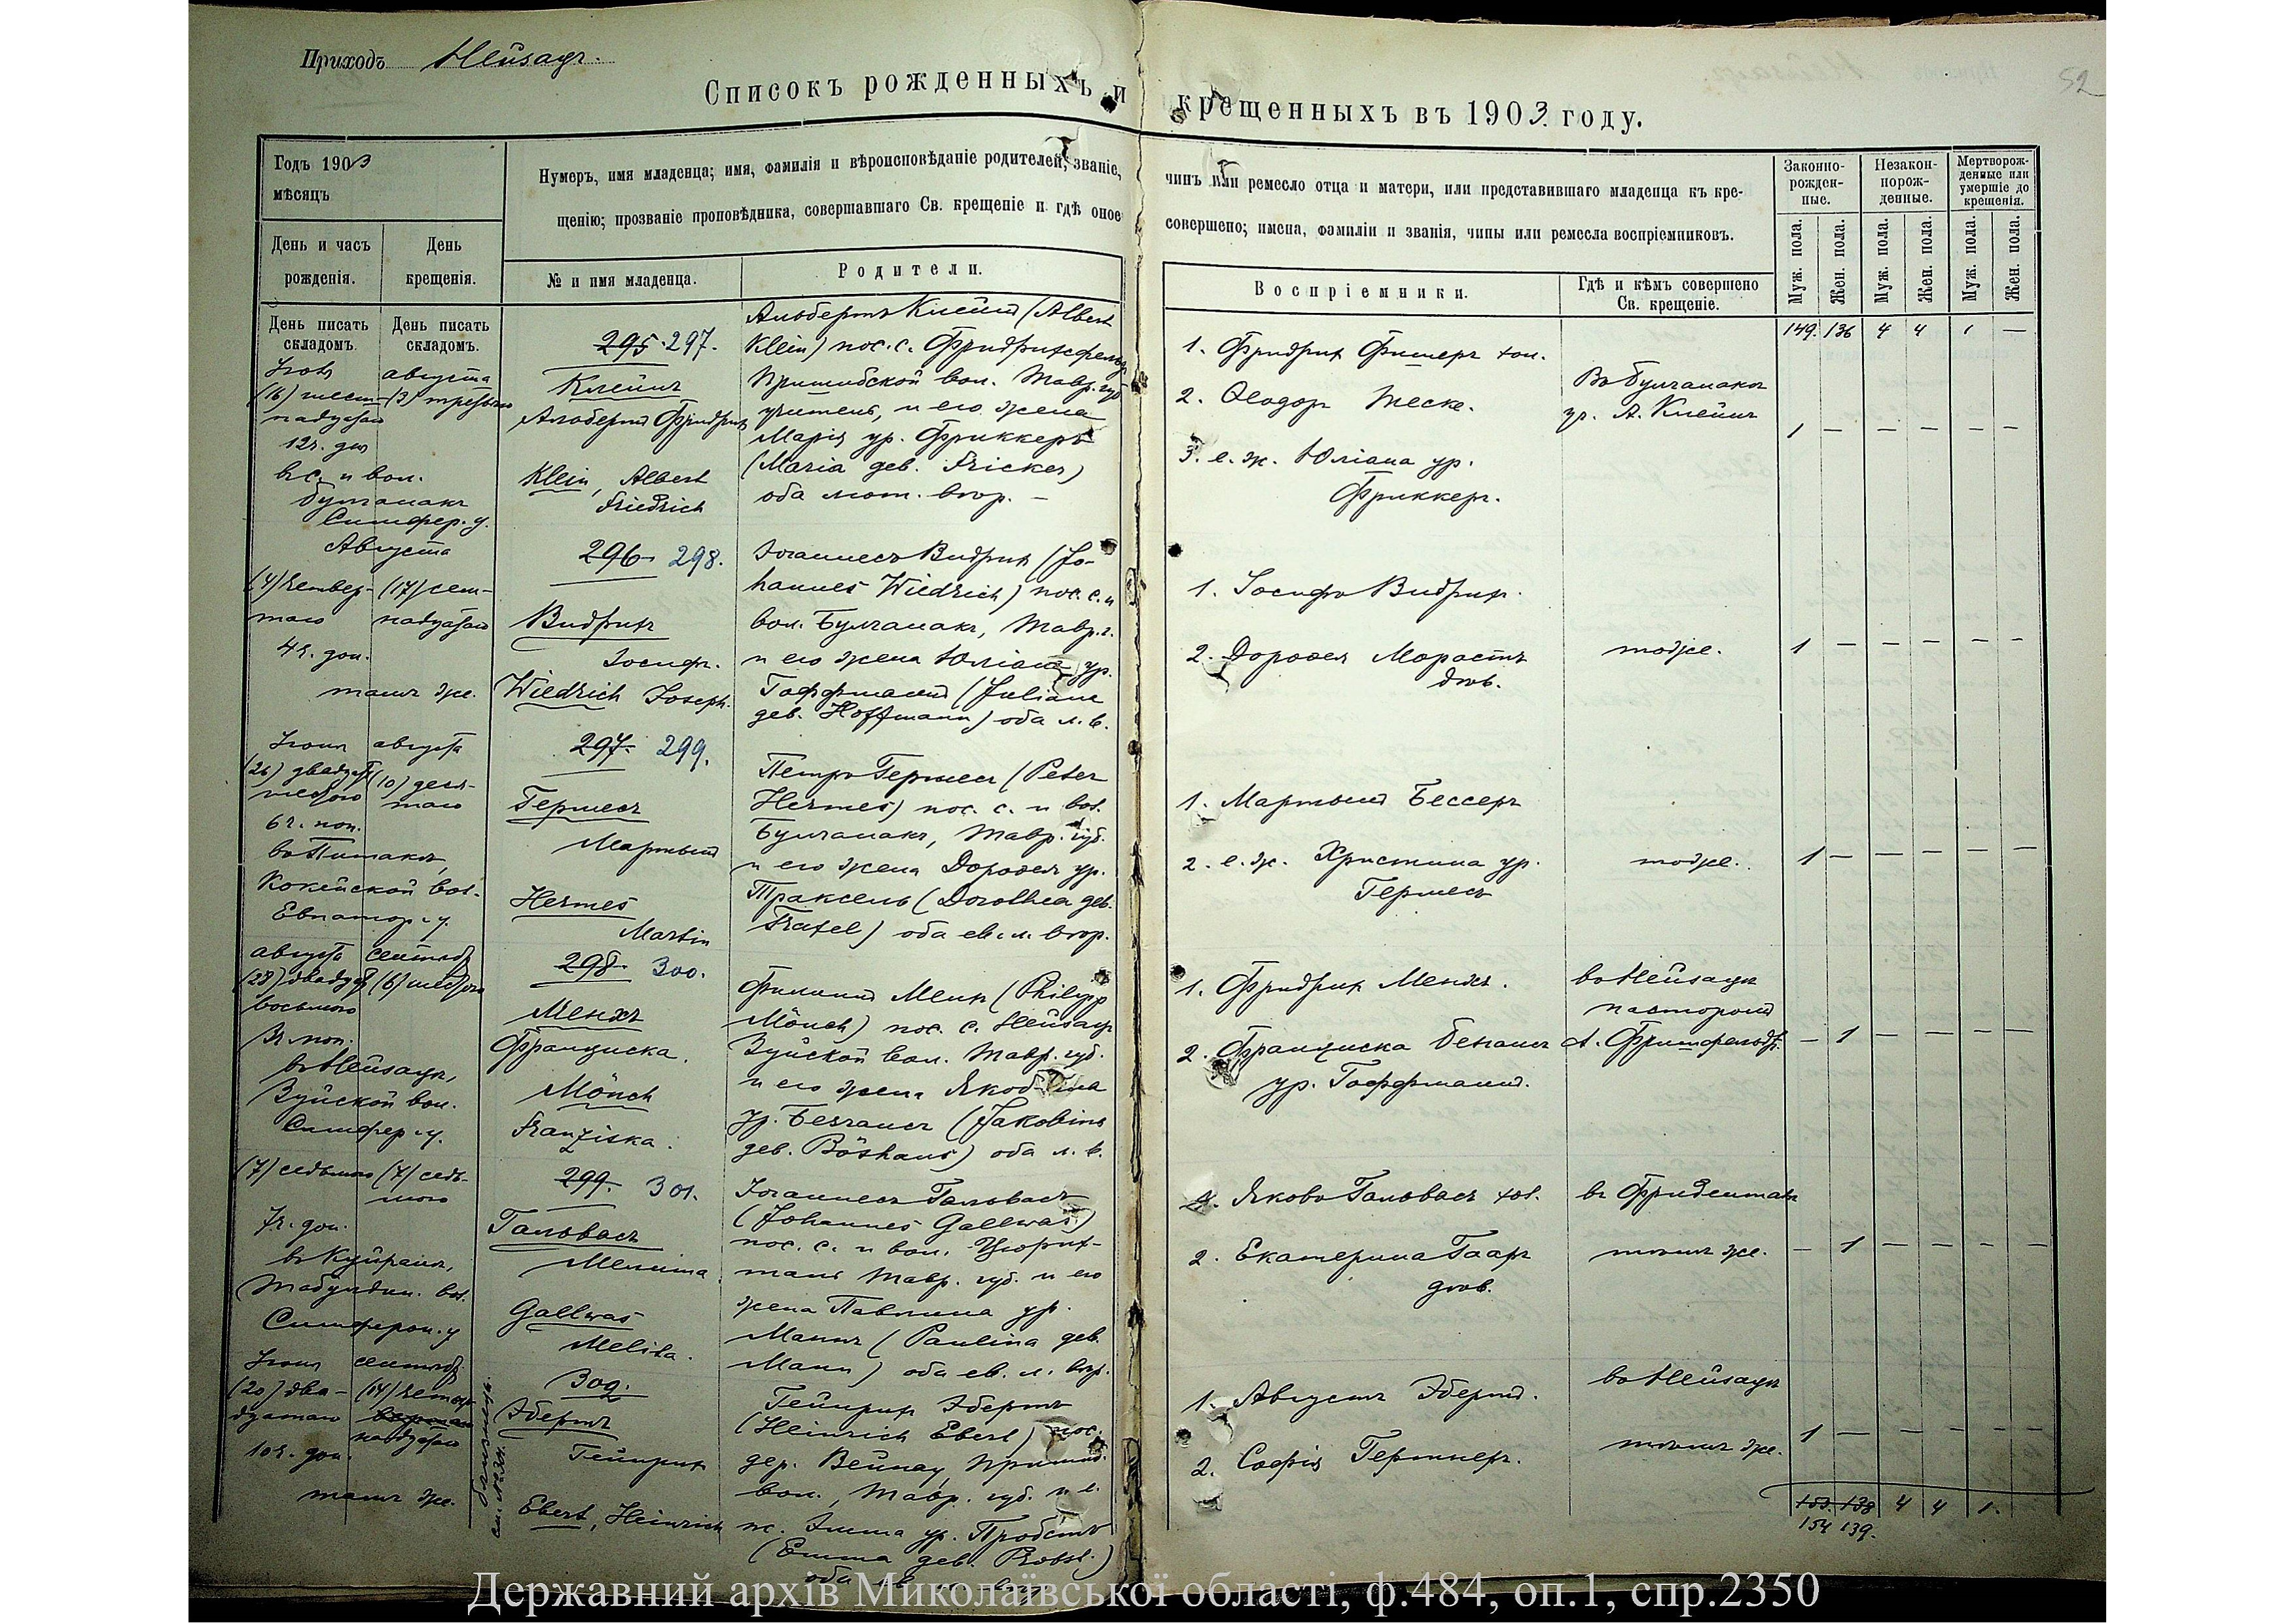 Приходъ Нейзацъ.
Списокъ рожденныхъ и крещенныхъ въ 1903 году.
52
Годъ 1903
мѣсяцъ
Нумеръ, имя младенца; имя, фамилія и вѣроисповѣданіе родителей; званіе,
щенію; прозваніе проповѣдника, совершавшаго Св. крещеніе и гдѣ оное
чинъ или ремесло отца и матери, или представившаго младенца къ кре-
совершено; имена, фамиліи и званія, чины или ремесла воспріемниковъ.
Законно-
рожден-
ные.
Незакон-
норож-
денные.
Мертворож-
денные или
умершіе до
крещенія.
День и часъ
рожденія.
День
крещенія.
№ и имя младенца.
Родители.
Воспріемники.
Гдѣ и кѣмъ совершено
Св. крещеніе.
Муж. пола.
Жен. пола.
Муж. пола.
Жен. пола.
Муж. пола.
Жен. пола.
День писать
складомъ.
День писать
складомъ.
149. 136 4 4 1 —
августа
(16) шест-
(3) третьяго
надцатаго
12ч. дня
в с. и вол.
Булганакъ
Симфер. у.
295. 297.
Клейнъ
Альбертъ Фридрихъ
Klein, Albert
Friedrich
Альбертъ Клейнъ (Albert
Klein) пос. с. Фридрихсфельдъ
Пришибской вол. Тавр. губ
учитель, и его жена
Марія ур. Фриккеръ
(Maria geb. Fricker)
оба лют. вѣр. —
1. Фридрихъ Фишеръ хол.
2. Ѳеодоръ Теске.
3. е. ж. Юліана ур.
Фриккеръ.
Въ Булганакѣ
уч. А. Клейнъ
1 — — — — —
Августа
(4) четвер-
таго
(17) сем-
надцатаго
4ч. поп.
тамъ же.
296 298.
Видрихъ
Іосифъ.
Wiedrich Joseph.
Іоганнесъ Видрихъ (Jo-
hannes Wiedrich) пос. с. и
вол. Булганакъ, Тавр. г.
и его жена Юліана ур.
Гоффманнъ (Juliana
geb. Hoffmann) оба л. в.
1. Іосифъ Видрихъ.
2. Доротея Морастъ
дѣв.
тоже.
1 — — — — —
августа
(10) деся-
таго
6ч. поп.
Евпатор. у.
297. 299.
Гермесъ
Мартынъ
Hermes
Martin
Петръ Гермесъ (Peter
Hermes) пос. с. и вол.
Булганакъ, Тавр. губ.
и его жена Доротея ур.
Траксель (Dorothea geb.
Traxel) оба ев. л. вѣр.
1. Мартынъ Бессеръ
2. е. ж. Христина ур.
Гермесъ
тоже.
1 — — — — —
августа
(28) двадцать
восьмого
сентябр
(6) шестого
3ч. поп.
въ Нейзацѣ,
Зуйской вол.
Симфер. у.
298. 300.
Менхъ
Франциска.
Mönch
Franziska.
Филиппъ Менхъ (Philipp
Mönch) пос. с. Нейзацъ
Зуйской вол. Тавр. губ.
и его жена Якобина
ур. Безгансъ (Jakobina
geb. Böshans) оба л. в.
1. Фридрихъ Менхъ.
2. Франциска Безгансъ
ур. Гоффманнъ.
въ Нейзацѣ
пасторомъ
— 1 — — — —
(7) седьмого
(7) седь-
мого
7ч. поп.
Симфероп. у
299. 301.
Гальвасъ
Мелита
Gallwas
Melita.
Іоганнесъ Гальвасъ
(Johannes Gallwas)
пос. с. и вол. Цюрих-
таль Тавр. губ. и его
жена Павлина ур.
Маннъ (Paulina geb.
Mann) оба ев. л. вѣр.
1. Яковъ Гальвасъ хол.
2. Екатерина Гааръ
дѣв.
въ Фриденталѣ
тѣмъ же.
— 1 — — — —
сентябр.
(20) два-
дцатаго
(14) четыр
надцатаго
10ч. поп.
тамъ же.
близнецъ.
302.
Эбертъ
Гейнрихъ
Ebert, Heinrich
Гейнрихъ Эбертъ
(Heinrich Ebert) пос.
дер. Вейнау, Пришиб.
вол., Тавр. губ. и е.
ж. Эмма ур. Пробстъ
(Emma geb. Probst.)
оба
1. Августъ Эбертъ.
2. Софія Гертнеръ.
въ Нейзацѣ
тѣмъ же.
1 — — — — —
153. 138 4 4 1.
154 139.
Державний архів Миколаївської області, ф.484, оп.1, спр.2350